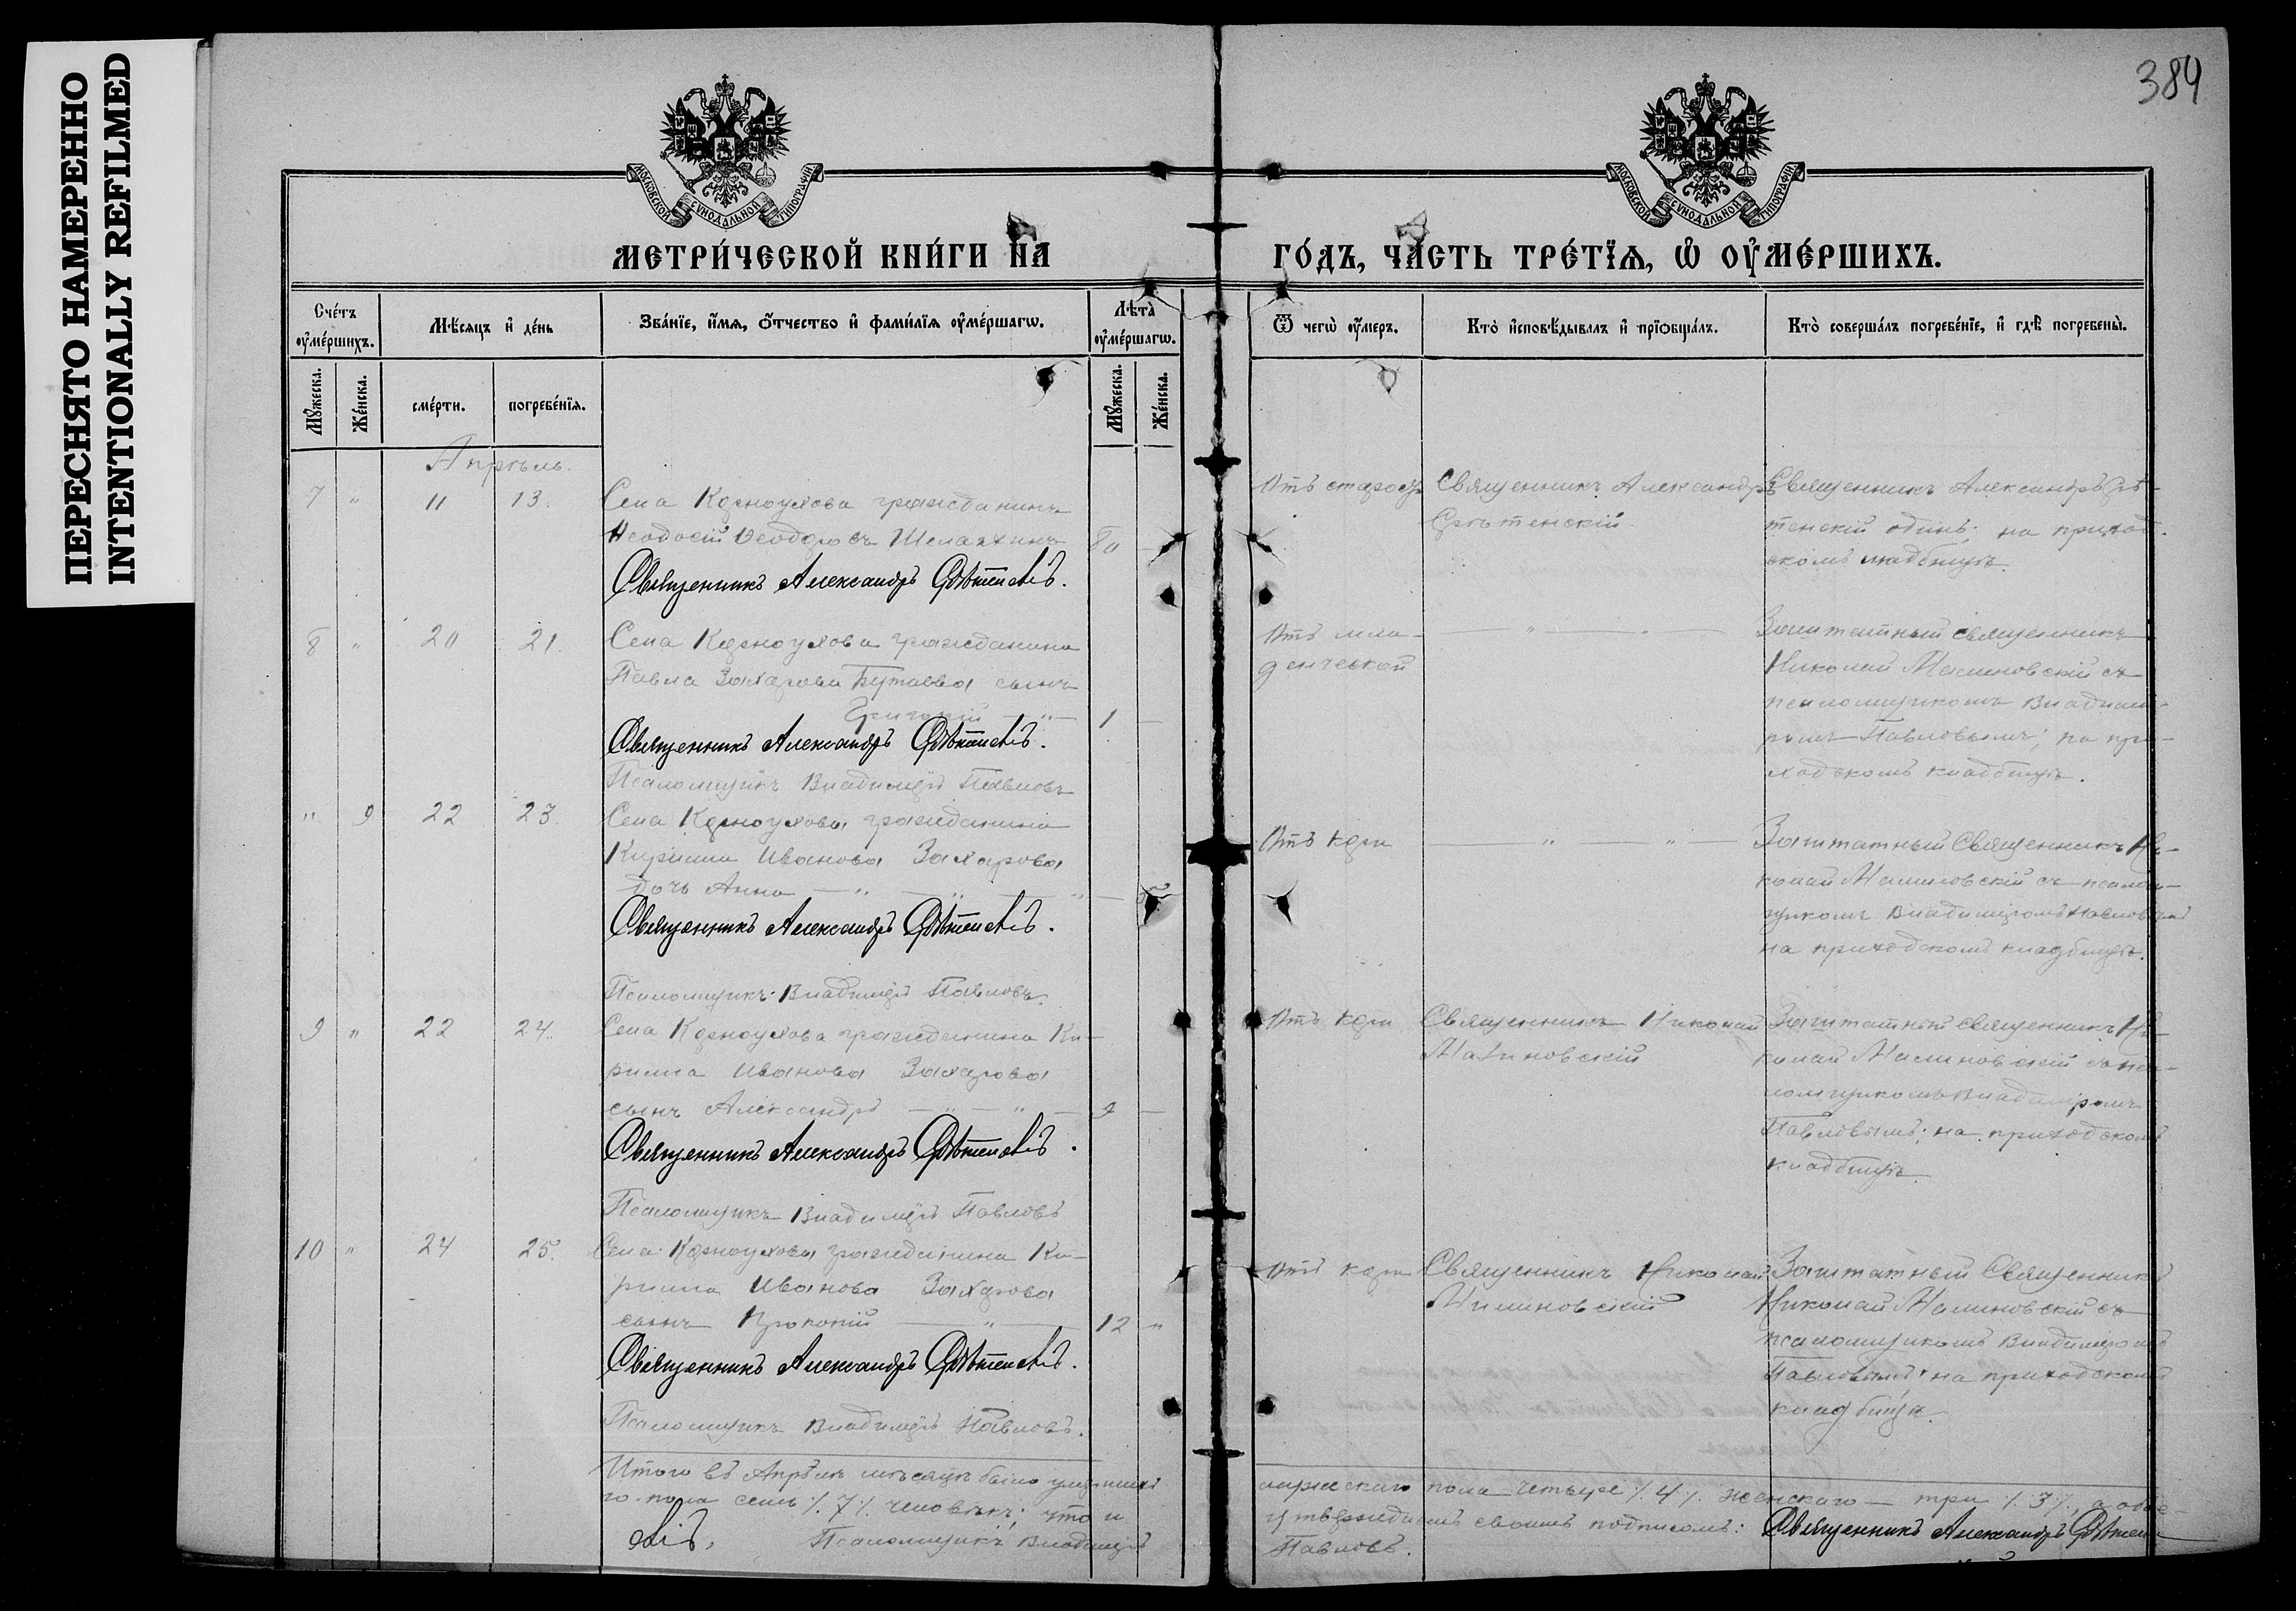 ПЕРЕСНЯТО НАМЕРЕННО
INTENTIONALLY REFILMED
384
МОСКОВСКОЙ СѴНОДАЛЬНОЙ ТИПОГРАФІИ
МОСКОВСКОЙ СѴНОДАЛЬНОЙ ТИПОГРАФІИ
МЕТРИ́ЧЕСКОЙ КНИ́ГИ НА
ГО́ДЪ, ЧА́СТЬ ТРЕ́ТЇѦ, Ѡ ОУ҆МЕ́РШИХЪ.
Сче́тъ оу҆ме́ршихъ.
Мѣ́сѧцъ и҆ де́нь
Зва́нїе, и҆́мѧ, ѻ҆́тчество и҆ фами́лїѧ оу҆ме́ршагѡ.
Лѣта̀ оу҆ме́ршагѡ.
Ѿ чегѡ̀ оу҆́меръ.
Кто̀ и҆сповѣ́дывалъ и҆ прїѻбща́лъ.
Кто̀ соверша́лъ погребе́нїе, и҆ гдѣ̀ погребены̀.
Мꙋ́жеска.
Же́нска.
сме́рти.
погребе́нїѧ.
Мꙋ́жеска.
Же́нска.
Апрѣль.
7 " 11 13.
Села Корноухова гражданинъ
Ѳеодосій Ѳеодоровъ Шелахинъ 80 —
Священникъ Александръ Срѣтенскій.
Отъ старос.
Священникъ Александръ
Срѣтенскій.
Священникъ Александръ Срѣ-
тенскій одинъ; на приход-
скомъ кладбищѣ.
8 " 20 21.
Села Корноухова гражданина
Павла Захарова Бутаева сынъ
Григорій — " — 1 —
Священникъ Александръ Срѣтенскій.
Псаломщикъ Владиміръ Павловъ
Отъ мла-
денческой
— " — " —
Заштатный священникъ
Николай Малиновскій съ
псаломщикомъ Владимі-
ромъ Павловымъ; на при-
ходскомъ кладбищѣ.
" 9 22 23.
Села Корноухова гражданина
Кирилла Иванова Захарова
дочь Анна — " — " — " — 5
Священникъ Александръ Срѣтенскій.
Псаломщикъ Владиміръ Павловъ.
Отъ кори
— " — " —
Заштатный Священникъ Ни-
колай Малиновскій съ псалом-
щикомъ Владиміромъ Павловымъ
на приходскомъ кладбищѣ.
9 " 22 24.
Села Корноухова гражданина Ки-
рилла Иванова Захарова
сынъ Александръ — " — " — 9 —
Священникъ Александръ Срѣтенскій.
Псаломщикъ Владиміръ Павловъ
Отъ кори
Священникъ Николай
Малиновскій
Заштатный священникъ Ни-
колай Малиновскій съ пса-
ломщикомъ Владиміромъ
Павловымъ; на приходскомъ
кладбищѣ.
10 " 24 25.
Села Корноухова гражданина Ки-
рилла Иванова Захарова
сынъ Прокопій — " — 12 "
Священникъ Александръ Срѣтенскій.
Псаломщикъ Владиміръ Павловъ.
Отъ кори
Священникъ Николай
Малиновскій
Заштатный Священникъ
Николай Малиновскій съ
псаломщикомъ Владиміромъ
Павловымъ; на приходскомъ
кладбищѣ.
Итого въ Апрѣлѣ мѣсяцѣ было умершихъ мужескаго пола четыре /. 4 /. женскаго — три /. 3 /., а обое-
го пола семь /. 7 /. человѣкъ; что и утверждаемъ своимъ подписомъ: Священникъ Александръ Срѣтен-
скій, Псаломщикъ Владиміръ Павловъ.